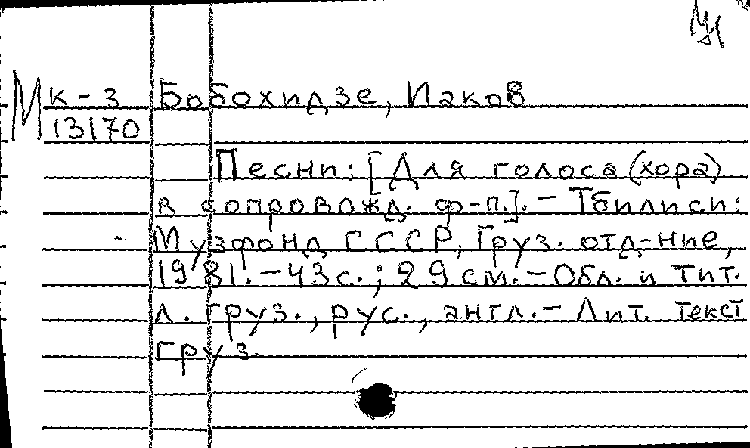 М к-3 Бобохидзе, Иаков
13170
Песни: [Для голоса (хора)
в сопровожд. ф-п.]. - Тбилиси:
Музфонд СССР, Груз. отд-ние,
1981. - 43 с.; 29 см. - Обл. и тит.
л. груз., рус., англ. - Лит. текст
груз.